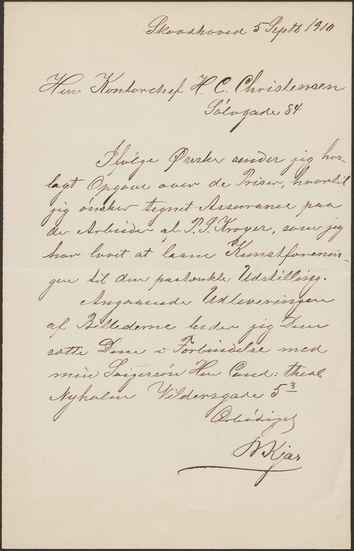 Skovshoved 5 Septb 1910
Herr Kontorchef H C. Christensen
Sølvgade 84
Ifølge Ønske sender jeg her-
lagt Opgave over de Priser, hvortil
jeg ønsker tegnet Assurance paa
de Arbeider af P. S. Krøyer, som jeg
har lovet at laane Kunstforenin-
gen til den paatænkte Udstilling.
Angaaende Udleveringen
af Billederne beder jeg Dem
sætte Dem i Forbindelse med
min Svigersøn Herr Cand: theol
Nyholm Vildersgade 5³
Ærbødigst
Kjær